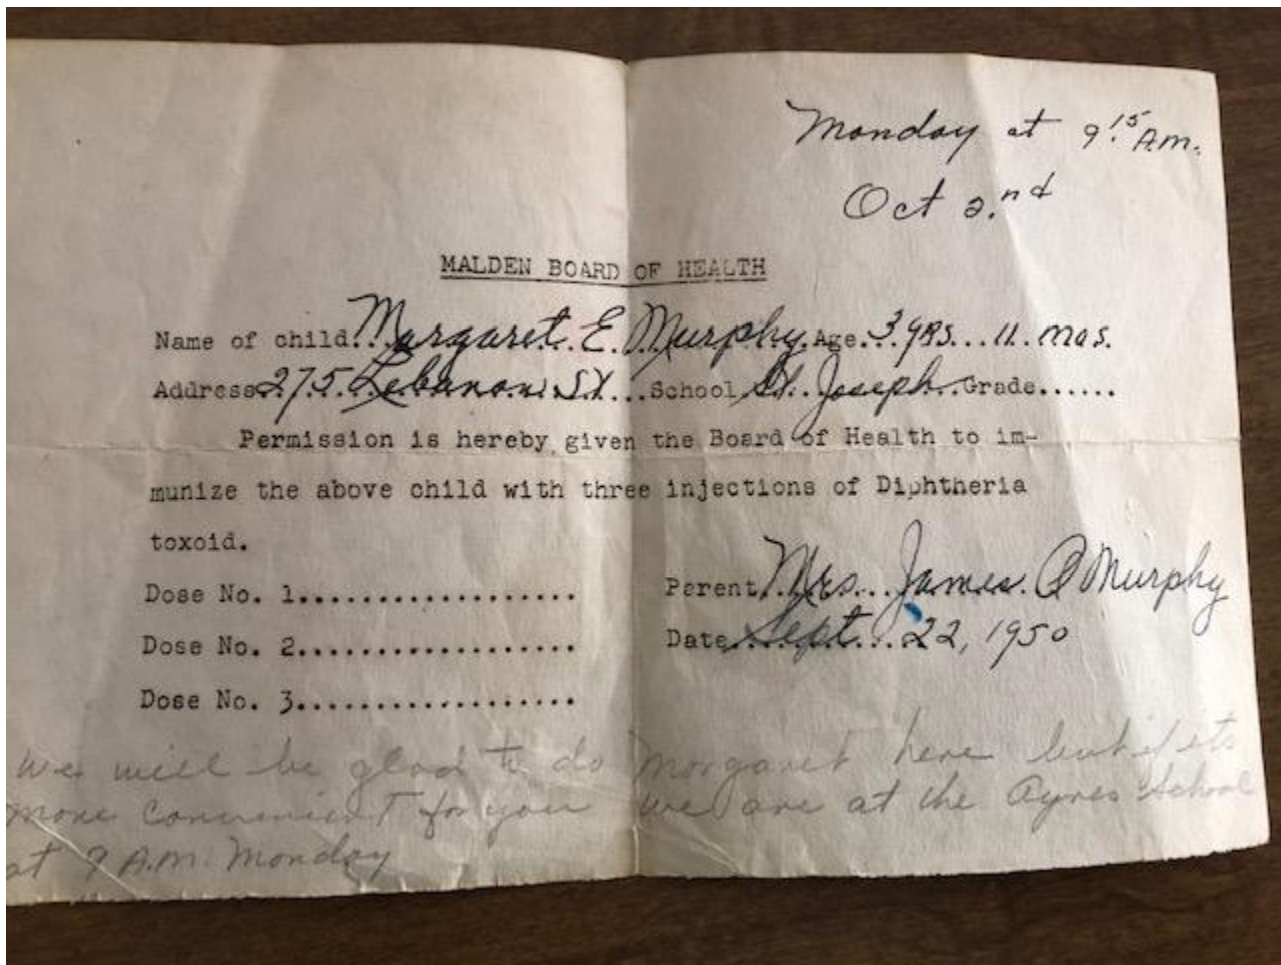 Monday at 9:15 A.M.
Oct 2nd
MALDEN BOARD OF HEALTH
Name of child..Margaret.E.Murphy.Age.3 yrs...11.mos.
Address.275.Lebanon.St...School.St.Joseph..Grade......
Permission is hereby given the Board of Health to im-
munize the above child with three injections of Diphtheria
toxoid.
Dose No. 1................... Parent.Mrs...James. P Murphy
Dose No. 2................... Date.Sept...22, 1950
Dose No. 3...................
We will be glad to do Margaret here but if its
more convenient for you we are at the Ayres School
at 9 A.M. Monday